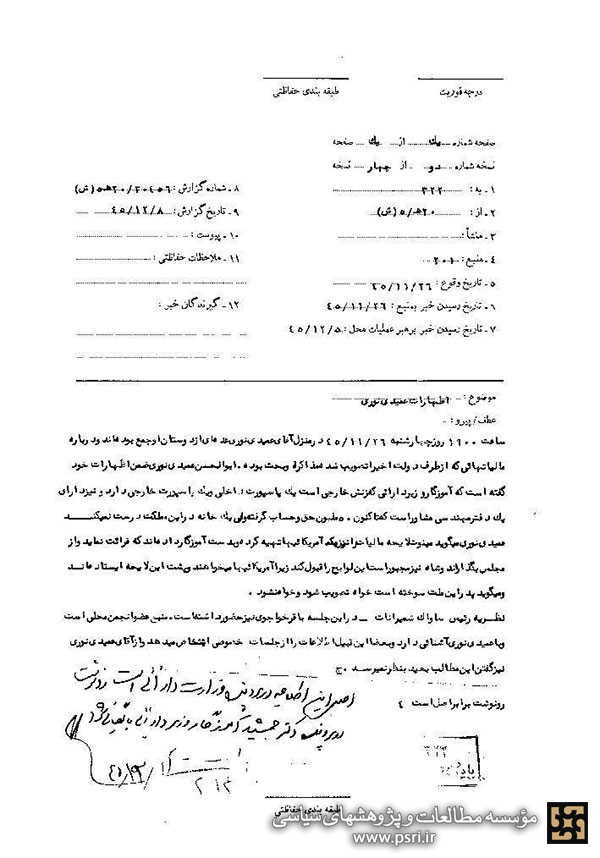 درجه فوریت
طبقه بندی حفاظتی
صفحه شماره یک از یک صفحه
نسخه شماره دو از چهار نسخه
۱ ـ به : ۳۲۲
۲ ـ از : ۲۰ه‍/۵(ش)
۳ ـ منشأ :
۴ ـ منبع : ۲۰۱
۵ ـ تاریخ وقوع : ۴۵/۱۱/۲۶
۶ ـ تاریخ رسیدن خبر بمنبع : ۴۵/۱۱/۲۶
۷ ـ تاریخ رسیدن خبر برهبر عملیات محل : ۴۵/۱۲/۵
۸ ـ شماره گزارش : ۲۰۴۵۶/۲۰ه‍۵(ش)
۹ ـ تاریخ گزارش : ۴۵/۱۲/۸
۱۰ ـ پیوست :
۱۱ ـ ملاحظات حفاظتی :
۱۲ ـ گیرندگان خبر :
موضوع : اظهارات عمیدی نوری
عطف/پیرو :
ساعت ۱۹۰۰ روز چهارشنبه ۴۵/۱۱/۲۶ در منزل آقای عمیدی نوری عده ای از دوستان او جمع بوده اند و درباره
مالیاتهائی که از طرف دولت اخیرا تصویب شد مذاکره و بحث بوده . ابوالحسن عمیدی نوری ضمن اظهارات خود
گفته است که آموزگار وزیر دارائی کفزنش خارجی است یک پاسپورت داخلی ویک پاسپورت خارجی دارد و نیز دارای
یک دفتر مهندسی مشاور است که تاکنون ۵۰ ملیون حق و حساب گرفته ولی یک خانه در این مملکت درست نمیکند
عمیدی نوری میگوید مینوت لایحه مالیات را نوزیکه آمریکائیها تهیه کرده بدست آموزگار داده اند که قرائت نماید و از
مجلس بگذراند و شاه نیز مجبور است این لوایح را قبول کند زیرا آمریکائیها میخواهند و پشت این لایحه ایستاده اند
و میگوید پدر این ملت سوخته است خواه تصویب شود و خواه نشود .
نظریه رئیس ساواک شمیرانات ـ در این جلسه باقر خواجوی نیز حضور داشته است . منبع عضو انجمن محلی است
و با عمیدی نوری آشنائی دارد و بعضا این قبیل اطلاعات را از جلسات خصوصی اشخاص میدهد و از آقای عمیدی نوری
نیز گفتن این مطالب بعید بنظر نمیرسد . ج
رونوشت برابر اصل است
اصل این اطلاعیه در پرونده وزارت دارائی است رونوشت
در پرونده دکتر جمشید آموزگار وزیر دارائی بایگانی شود
۳۲۲
طبقه بندی حفاظتی
مؤسسه مطالعات و پژوهشهای سیاسی
www.psri.ir